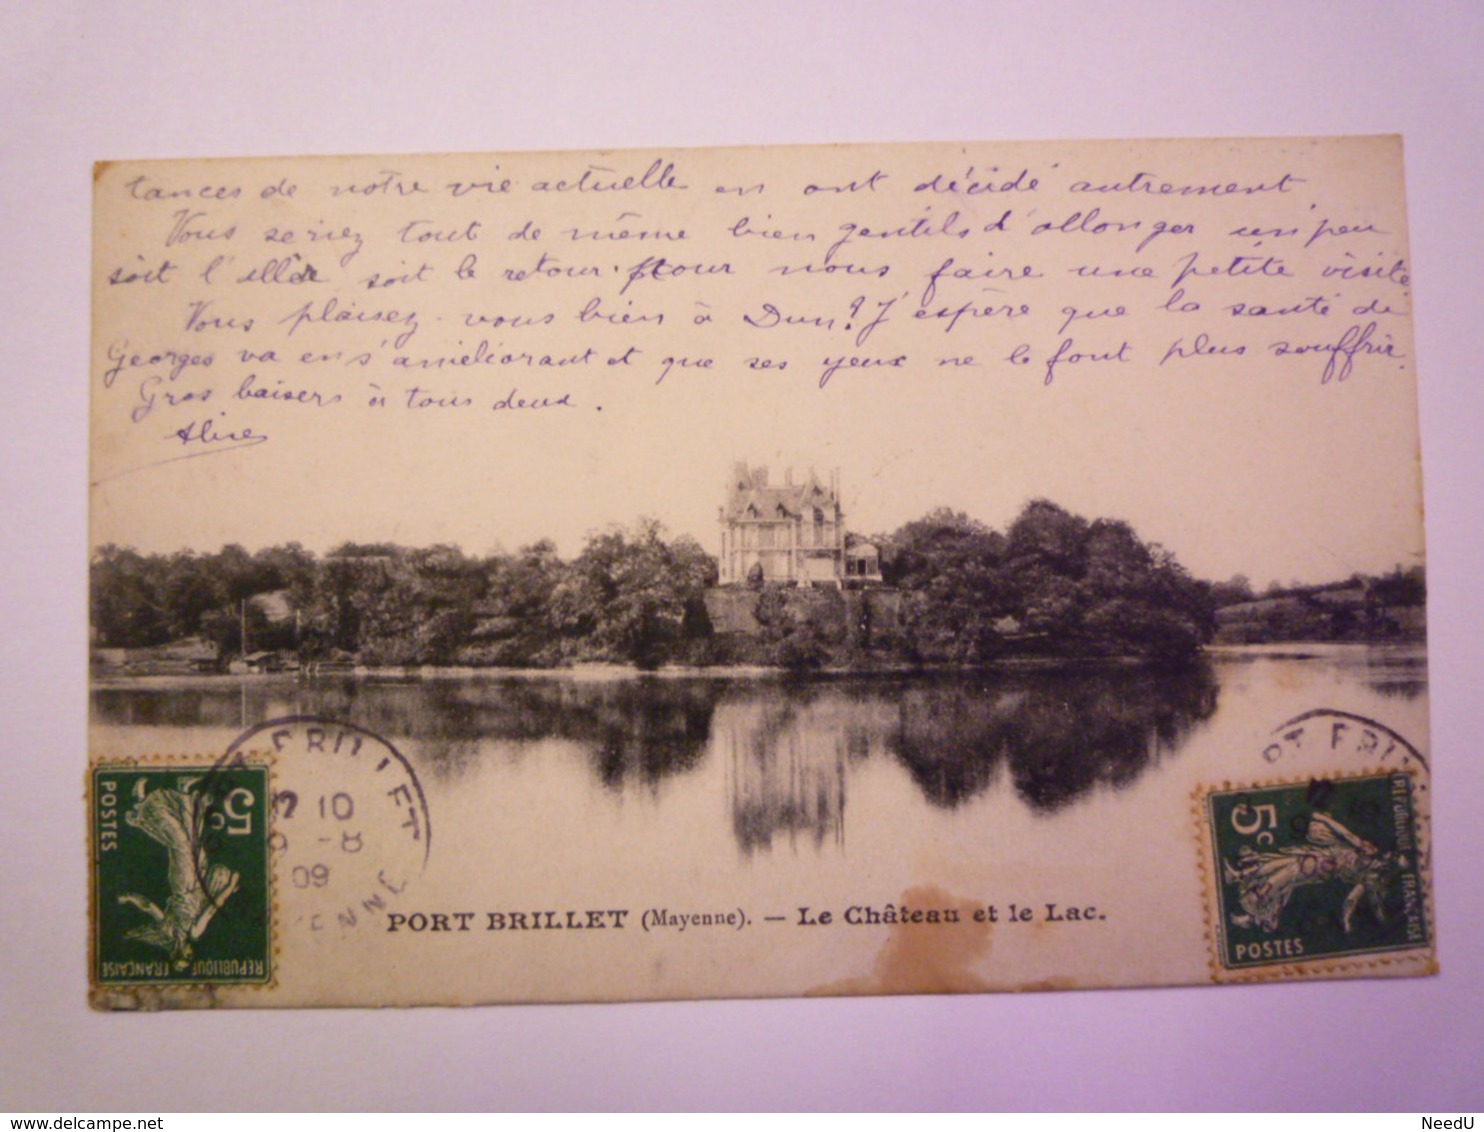 tances de notre vie actuelle en ont décidé autrement.
Vous seriez tout de même bien gentils d'allonger un peu
soit l'aller soit le retour pour nous faire une petite visite.
Vous plaisez-vous bien à Dun? J'espère que la santé de
Georges va en s'améliorant et que ses yeux ne le font plus souffrir.
Gros baisers à tous deux.
PORT BRILLET
10
9 - 8
09
5c
POSTES
REPUBLIQUE FRANÇAISE
PORT BRILLET (Mayenne). — Le Château et le Lac.
5c
POSTES
REPUBLIQUE FRANÇAISE
09
www.delcampe.net
NeedU